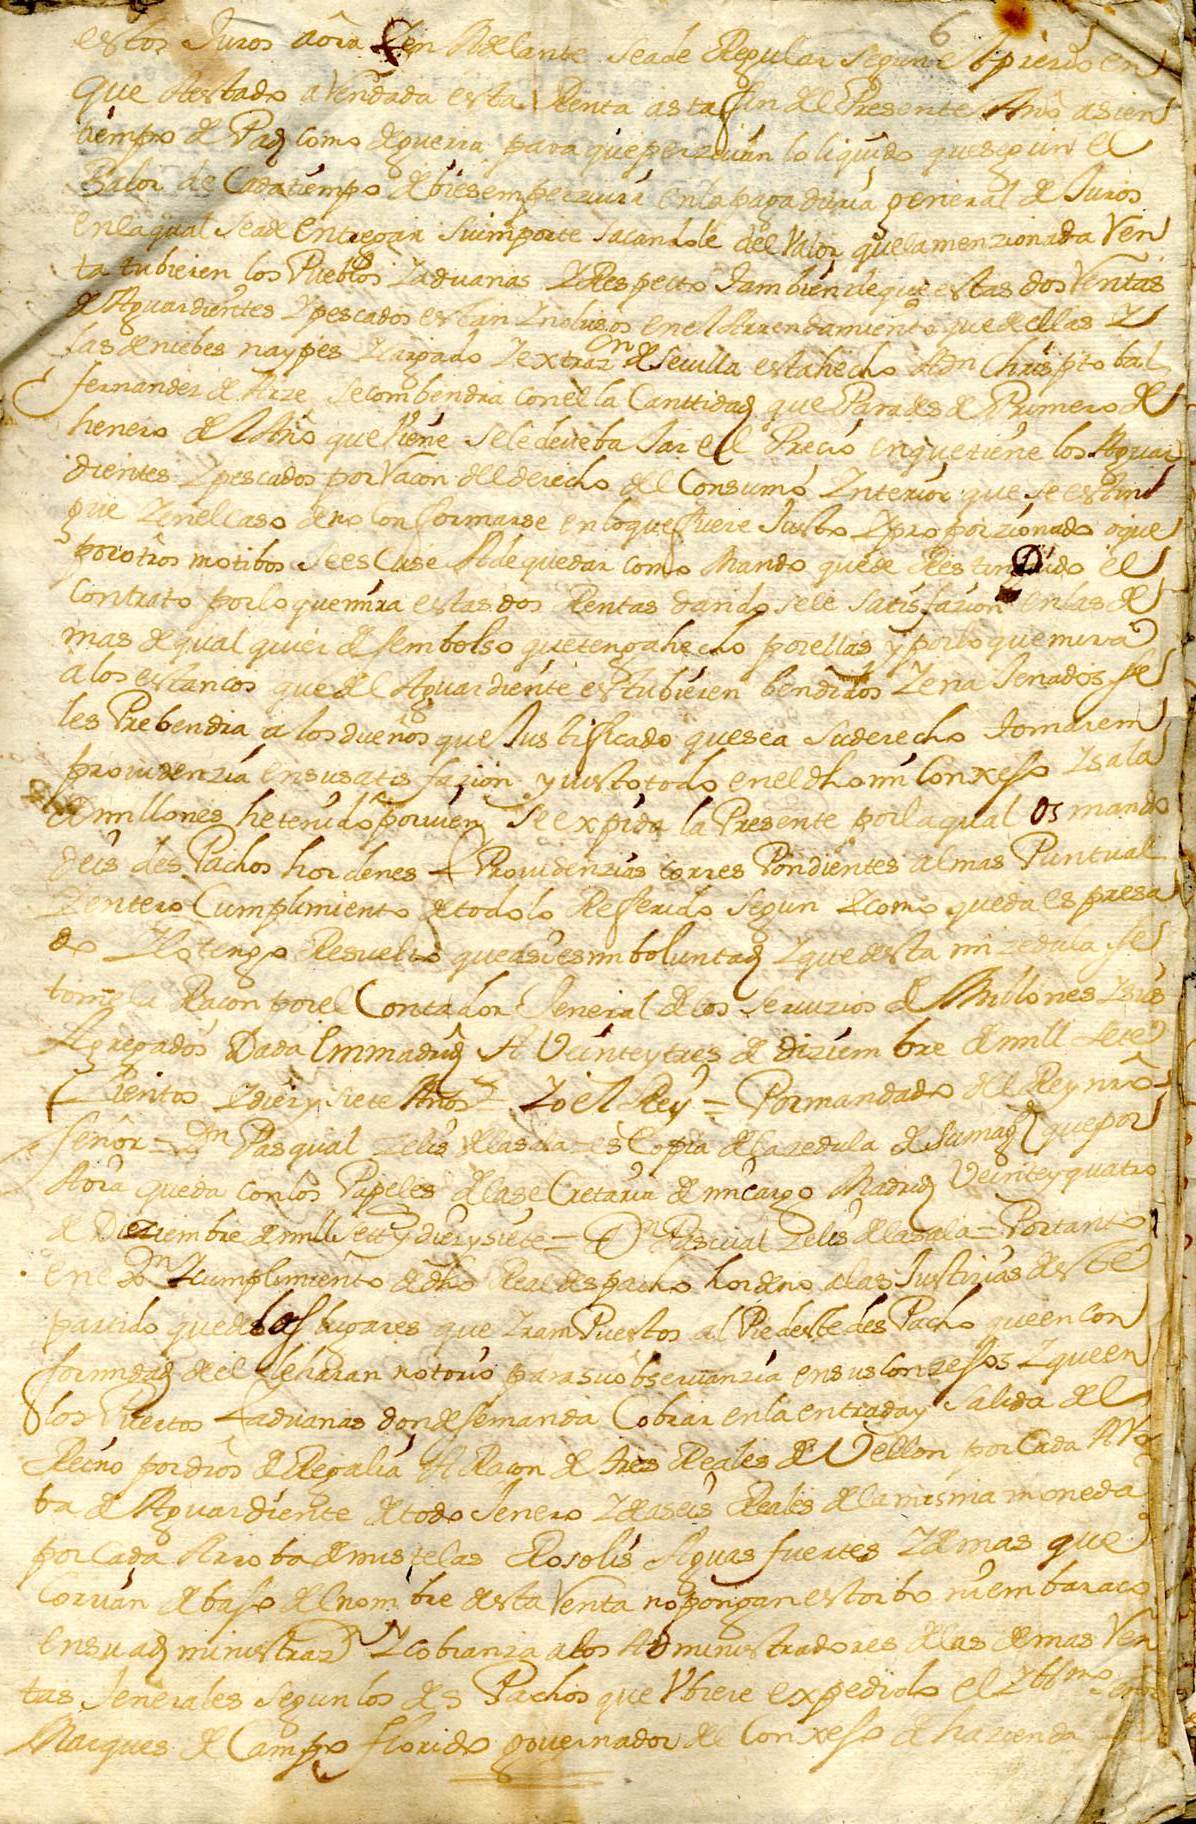 6
estos Juros aôra Y en Adelante seade Regular segun el prezio en
que Aestado a Vendada esta Renta asta fin del Presente Año asi en
tiempo de Paz como de guerra para que perziuan lo liquido que segun el
Balor de Cada tiempo deviesem perziuir en la pagaduria general de Juros
en la qual seade Entregar su importe sacandole del Valor que la menzionada Ren
ta tubieren los Pueblos Y aduanas Y Respecto Tambien de que estas dos Rentas
de Aguardientes Y pescados estan Ynclussos en el Arrendamiento que de ellas Y
las de niebes naypes Y cargado Y extraz.on de Seuilla esta hecho A D.n Chrisptobal
fernandez de Arze se combendra con el la Canttidad que Para des de Primero de
henero del Año que Viene se le deue baJar en el Precio en que tiene los Aguar
dientes Y pescados por Racon del derecho del Consumo Ynterior que se estin
gue Y en el caso de no conformarse en lo que fuere Justo Y proporzionado o que
por otros motibos se escuse Ade quedar como Mando quede Restinguido el
Contrato por lo que mira estas dos Rentas dandosele satisfazion en las de
mas de qual quier desembolso que tenga hecho por ellas y por lo que mira
a los estancos que del Aguardiente estubieren bendidos Y enaJenados se
les Prebendra a los dueños que Justificado que sea su derecho tomarem
prouidenzia en su satisfazion y uisto todo en el dho mi Conxeso Y sala
de millones he tenido por uien se expida la Presente por la qual os mando
deis des Pachos hordenes Y Prouidenzias corres Pondientes al mas Puntual
Y entero Cumplimiento de todo lo Referido segun Y como queda espresa
do Y lo tengo Resuelto que asi es mi boluntad Y que desta mi zedula se
tome la Racon por el Contador Jeneral de los seruizios de Millones Y sus
Agregados Dada En madrid A Veinte y tres de diziembre de mill sete
Zientos Y diez y siete Años = Yo el Rey = Por mandado del Rey nro
señor = Dn Pasqual Zelis de la sala = es Copia de la zedula de su magd que por
Aora queda con los Papeles de la seCretaria de mi cargo Madrid Veinte y quatro
de Diziembre de mill sett.s y diez y siete = Dn Pascual Zelis de la sala = Por tanto
en Cumplimiento de dho Real despacho hordeno a las Justizias deste
partido que de los lugares que Yran Puestos al Pie deste des Pacho que en con
formidad de el le haran notorio para su obseruanzia en sus Conzejos Y que en
los Puertos Y aduanas donde se manda Cobrar en la entrada y salida del
Reino por dros de Regalia A Racon de tres Reales de Vellon por Cada Arro
ba de Aguardiente de todo Jenero Y de a seis Reales de la misma moneda
por Cada Arroba de mistelas Rosolis Aguas fuertes Y demas que
Corran debajo del nombre desta Renta no pongan estorbo ni embaraco
en su administraz.on Y cobranza a los Administradores de las demas Ren
tas Jenerales segun los des Pachos que Vbiere expedido el Yllmo señor
Marques de Campo florido gouernador del Conxeso de hazienda